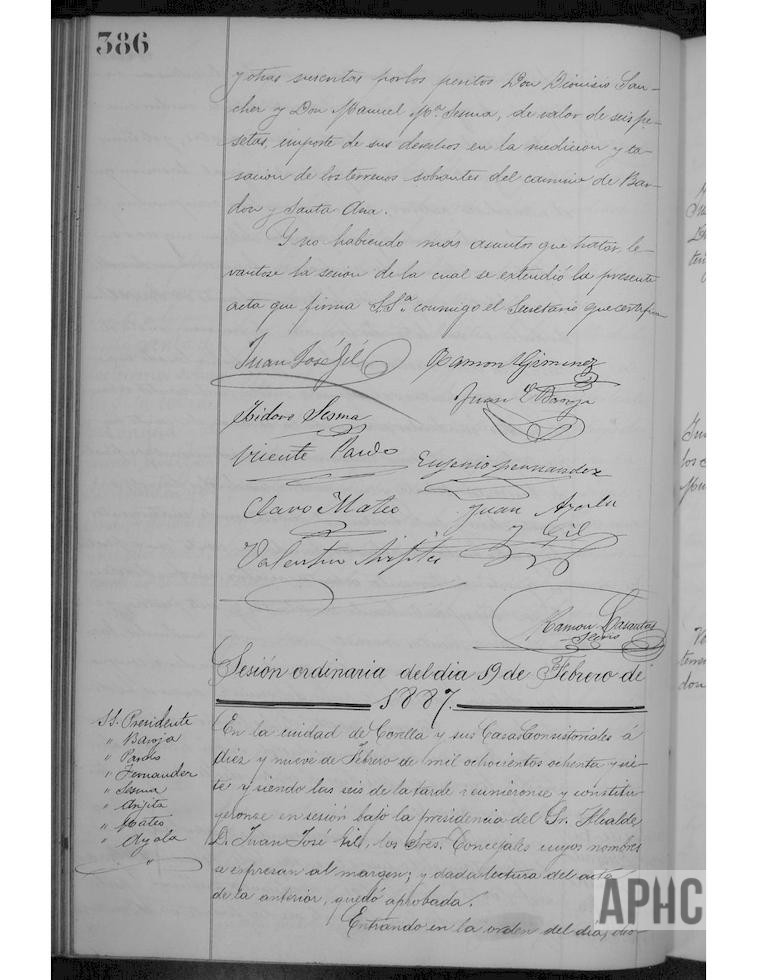 386
y otras suscritas por los peritos Don Dionisio San-
chez y Don Manuel Mª Sesma, de valor de seis pe-
setas, importe de sus derechos en la medicion y ta-
sacion de los terrenos sobrantes del camino de Bar-
don y Santa Ana.
Y no habiendo más asuntos que tratar, le-
vantose la sesion de la cual se extendió la presente
acta que firma S.Sª conmigo el Secretario que certifico
Juan José Gil
Ramon Gimenez
Isidoro Sesma
Juan Baroja
Vicente Pardo
Eugenio Fernandez
Claro Mateo
Juan Ayala
y Gil
Valentin
Ramon Lasantas
Srio
Sesión ordinaria del dia 19 de Febrero de
1887.
SS. Presidente
" Baroja
" Pardo
" Fernandez
" Sesma
" Arjita
" Mateo
" Ayala
"
En la ciudad de Corella y sus Casas Consistoriales á
diez y nueve de Febrero de mil ochocientos ochenta y sie-
te y siendo las seis de la tarde reunieronse y constitu-
yeronse en sesión bajo la presidencia del Sr. Alcalde
D. Juan José Gil, los Sres. Concejales cuyos nombres
se expresan al margen; y dada lectura del acta
de la anterior, quedó aprobada.
Entrando en la orden del dia, dio-
APHC